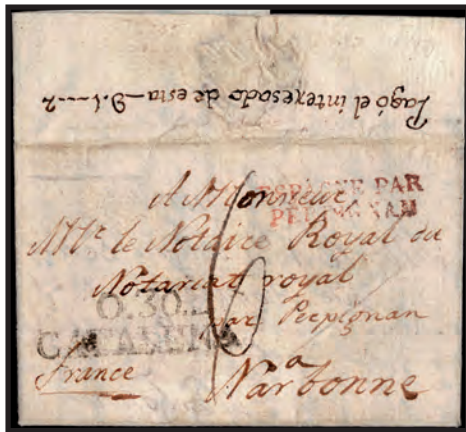 Pagó el interesado de esta
ESPAGNE PAR
PERPIGNAN
A Monsieur
Mr. le Notaire Royal ou
Notariat royal
par Perpignan
CATALUÑA
France
Narbonne
6